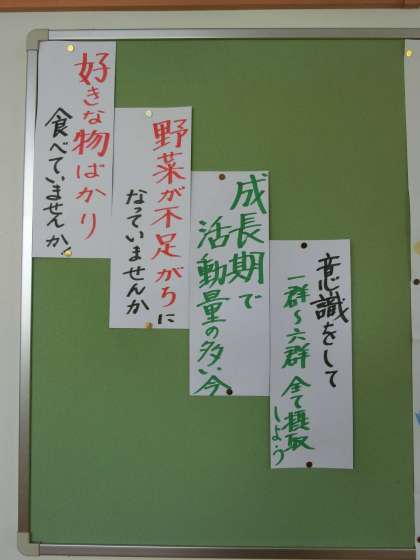 好きな物ばかり
食べていませんか
野菜が不足がちに
なっていませんか
成長期で
活動量の多い今
意識をして
一群～六群 全て摂取
しよう